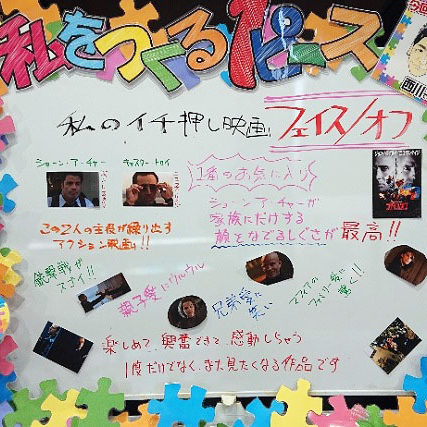 私をつくる1ピース
私のイチ押し映画 フェイス/オフ
ショーン・アーチャー
キャスター・トロイ
この2人の主役が繰り出す
アクション映画!!
1番のお気に入り
ショーン・アーチャーが
家族にだけする
顔をなでるしぐさが最高!!
銃撃戦が
スゴイ!!
親子愛にウルウル
兄弟愛に
マフィアの
ファミリー愛に
驚く!!
楽しめて、興奮できて、感動しちゃう
1度だけでなく、また見たくなる作品です